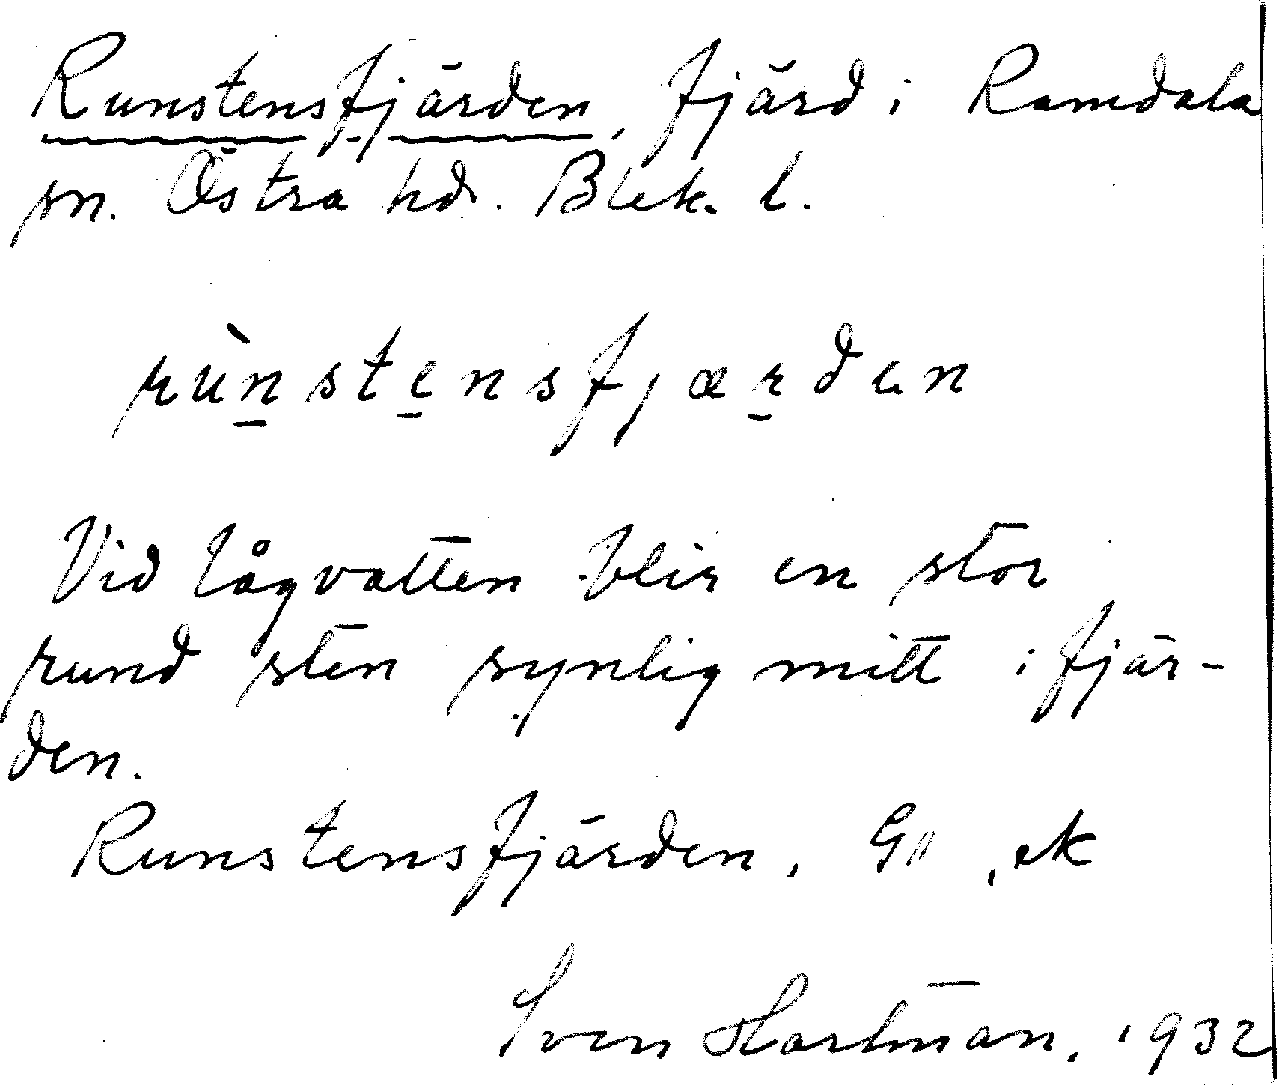 Runstensfjärden, fjärd i Ramdala
sn. Östra hd. Blek. l.
rùnstensfjærden
Vid lågvatten blir en stor
rund sten synlig mitt i fjär-
den.
Runstensfjärden, ek
Sven Hartman, 1932